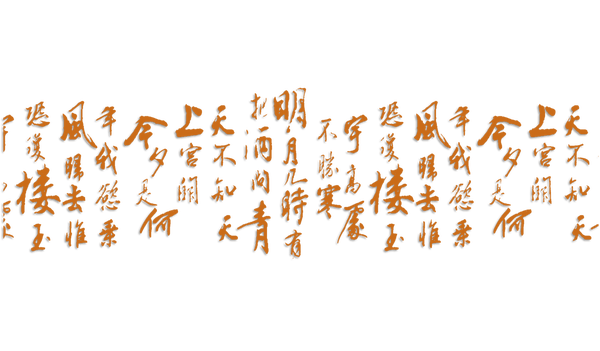 天不知天
上宫阙
今夕是何
年我慾乘
風歸去惟
恐瓊楼玉
宇高處
不勝寒
明月几時有
把酒问青
天不知天
上宫阙
今夕是何
年我慾乘
風歸去惟
恐瓊楼玉